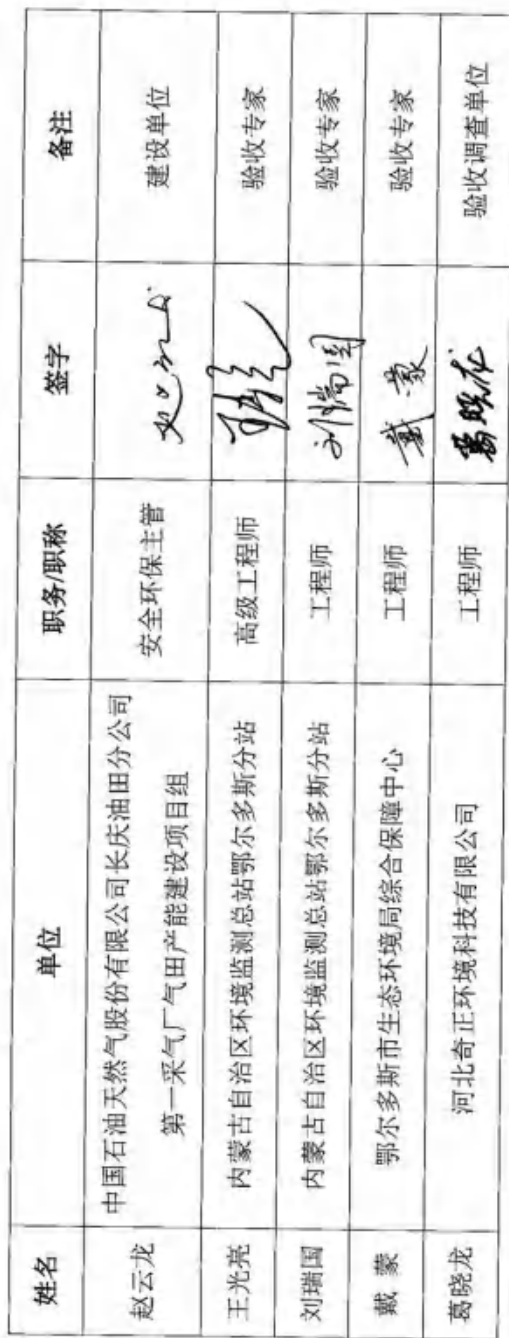 姓名 单位 职务/职称 签字 备注
赵云龙 中国石油天然气股份有限公司长庆油田分公司 安全环保主管 赵云龙 建设单位
第一采气厂气田产能建设项目组
王光亮 内蒙古自治区环境监测总站鄂尔多斯分站 高级工程师 验收专家
刘瑞国 内蒙古自治区环境监测总站鄂尔多斯分站 工程师 刘瑞国 验收专家
戴 蒙 鄂尔多斯市生态环境局综合保障中心 工程师 戴蒙 验收专家
葛晓龙 河北奇正环境科技有限公司 工程师 葛晓龙 验收调查单位